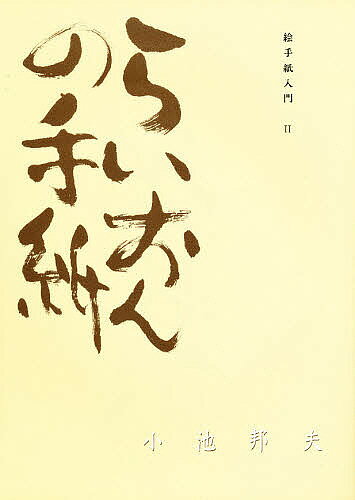 絵手紙入門 II
らいおん
の手紙
小池邦夫